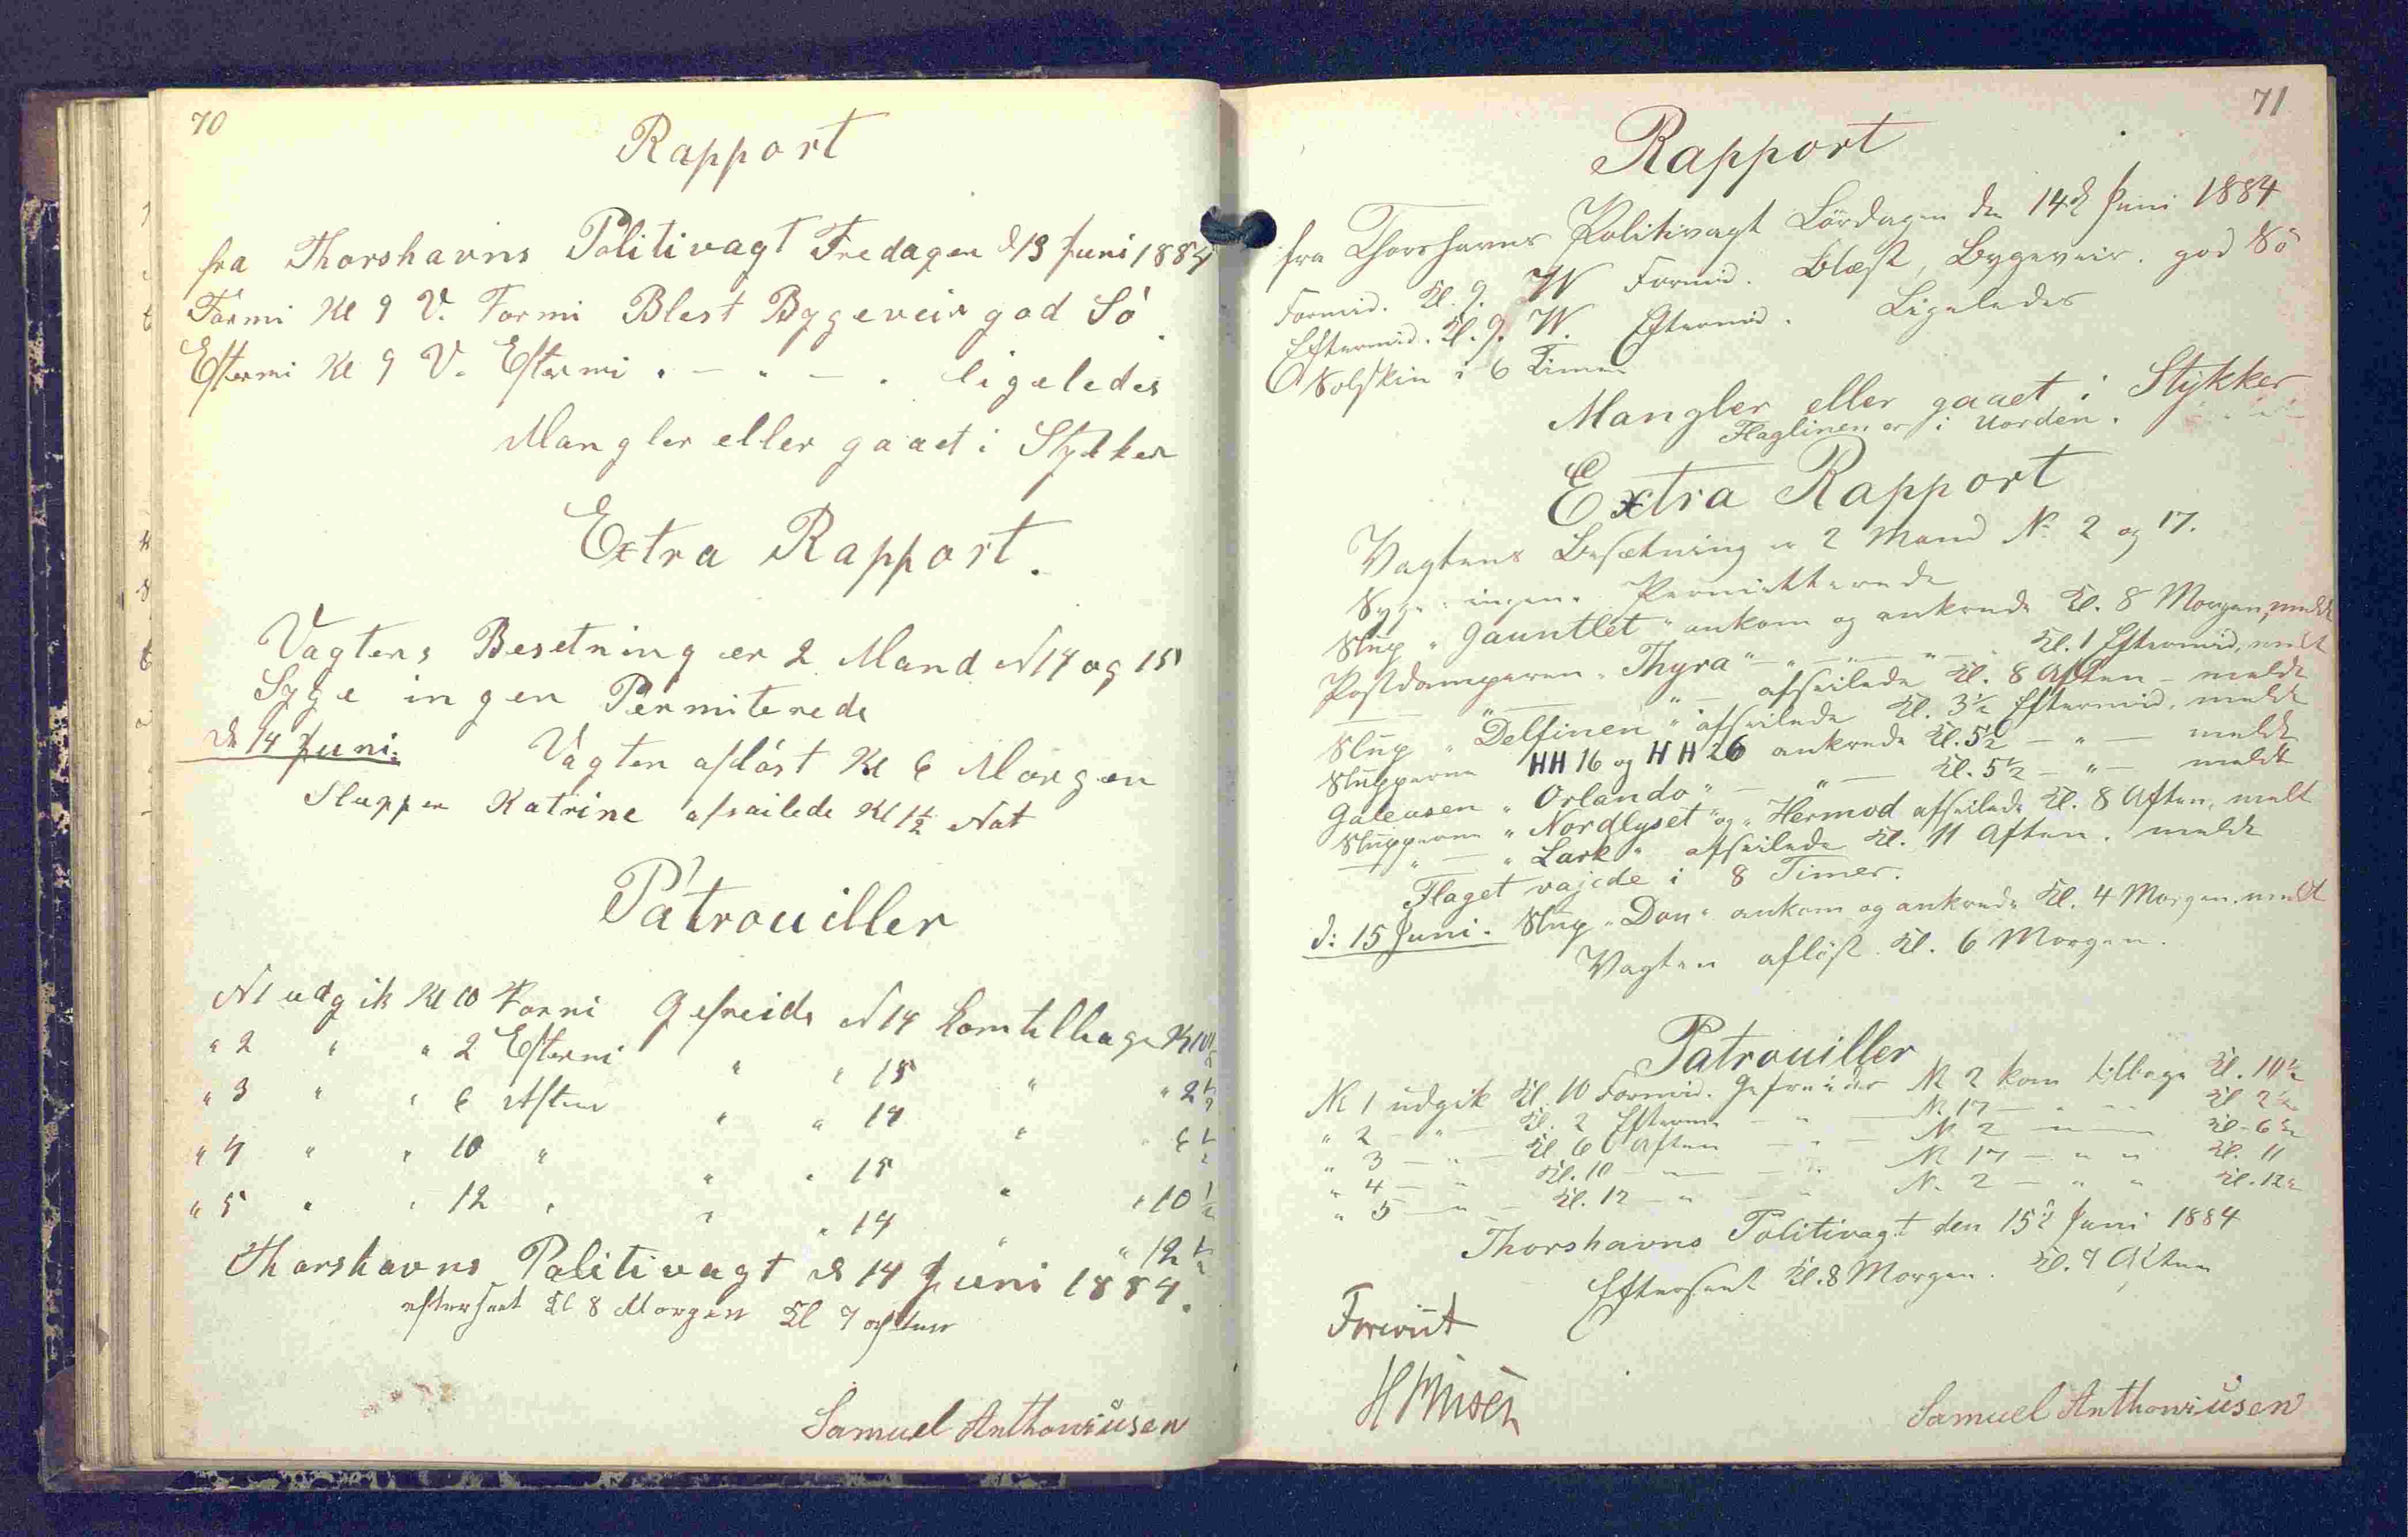 70
Rapport
fra Thorshavns Politivagt Fredagen d 13 Juni 1884
Formi Kl 9 V. Formi Blest Bygeveir god Sö
Eftermi Kl 9 V. Eftermi " — " — " ligeledes
Mangler eller gaaet i Stykker
Extra Rapport.
Vagtens Besetning er 2 Mand N 14 og 15
Syge ingen Permiterede
d 14 Juni. Vagten aflöst Kl 6 Morgen
Sluppen Katrine afsailede Kl 1½ Nat
Patrouiller
N 1 udgik Kl 10 Formi Gefreide N 14 kom tilbage Kl 10½
" 2 " " 2 Eftermi " " 15 " " 2½
" 3 " " 6 Aften " " 14 " " 6½
" 4 " " 10 " " " 15 " " 10½
" 5 " " 12 " " " 14 " " 12½
Thorshavns Politivagt d 14 Juni 1884.
efterseet Kl 8 Morgen Kl 7 aften
Samuel Anthoniusen
71
Rapport
fra Thorshavns Politivagt Lördagen den 14d Juni 1884
Formid. Kl. 9. W Formid. Blæst, Bygeveir. god Sö
Eftermid. Kl. 9. W. Eftermid. Ligeledes
Solskin i 6 Timer
Mangler eller gaaet i Stykker
Flaglinen er i Uorden.
Extra Rapport
Vagtens Besætning er 2 Mand N. 2 og 17.
Syge: ingen. Permitterede
Slup "Gauntlet" ankom og ankrede Kl. 8 Morgen, meldt
Postdamperen "Thyra" — " — " — " — Kl. 1 Eftermid, meldt
— " — " — afseilede Kl. 8 Aften – meldt
Slup "Delfinen" afseilede Kl. 3½ Eftermid. meldt
Slupperne HH 16 og HH 26 ankrede Kl. 5½ — " — meldt
Galeasen "Orlando" — " — Kl. 5½ — " — meldt
Slupperne "Nordlyset" og "Hermod afseilede Kl. 8 Aften, meldt
— " — "Lark" afseilede Kl. 11 Aften. meldt
Flaget vajede i 8 Timer.
d: 15 Juni. Slup "Don" ankom og ankrede Kl. 4 Morgen. meldt
Vagten aflöst Kl. 6 Morgen.
Patrouiller
N. 1 udgik Kl. 10 Formid. Gefreider N. 2 kom tilbage Kl. 10½
" 2 — " — Kl. 2 Efterm. — " — N. 17 — " — Kl 2½
" 3 — " — Kl. 6 Aften — " — N. 2 — " — Kl. 6½
" 4 — " — Kl. 10 — " — " — N. 17 — " " Kl. 11
" 5 — " — Kl. 12 — " — " N. 2 — " " Kl. 12½
Thorshavns Politivagt den 15d Juni 1884
Efterseet Kl. 8 Morgen. Kl. 7 Aften
Forevist
Samuel Anthoniusen